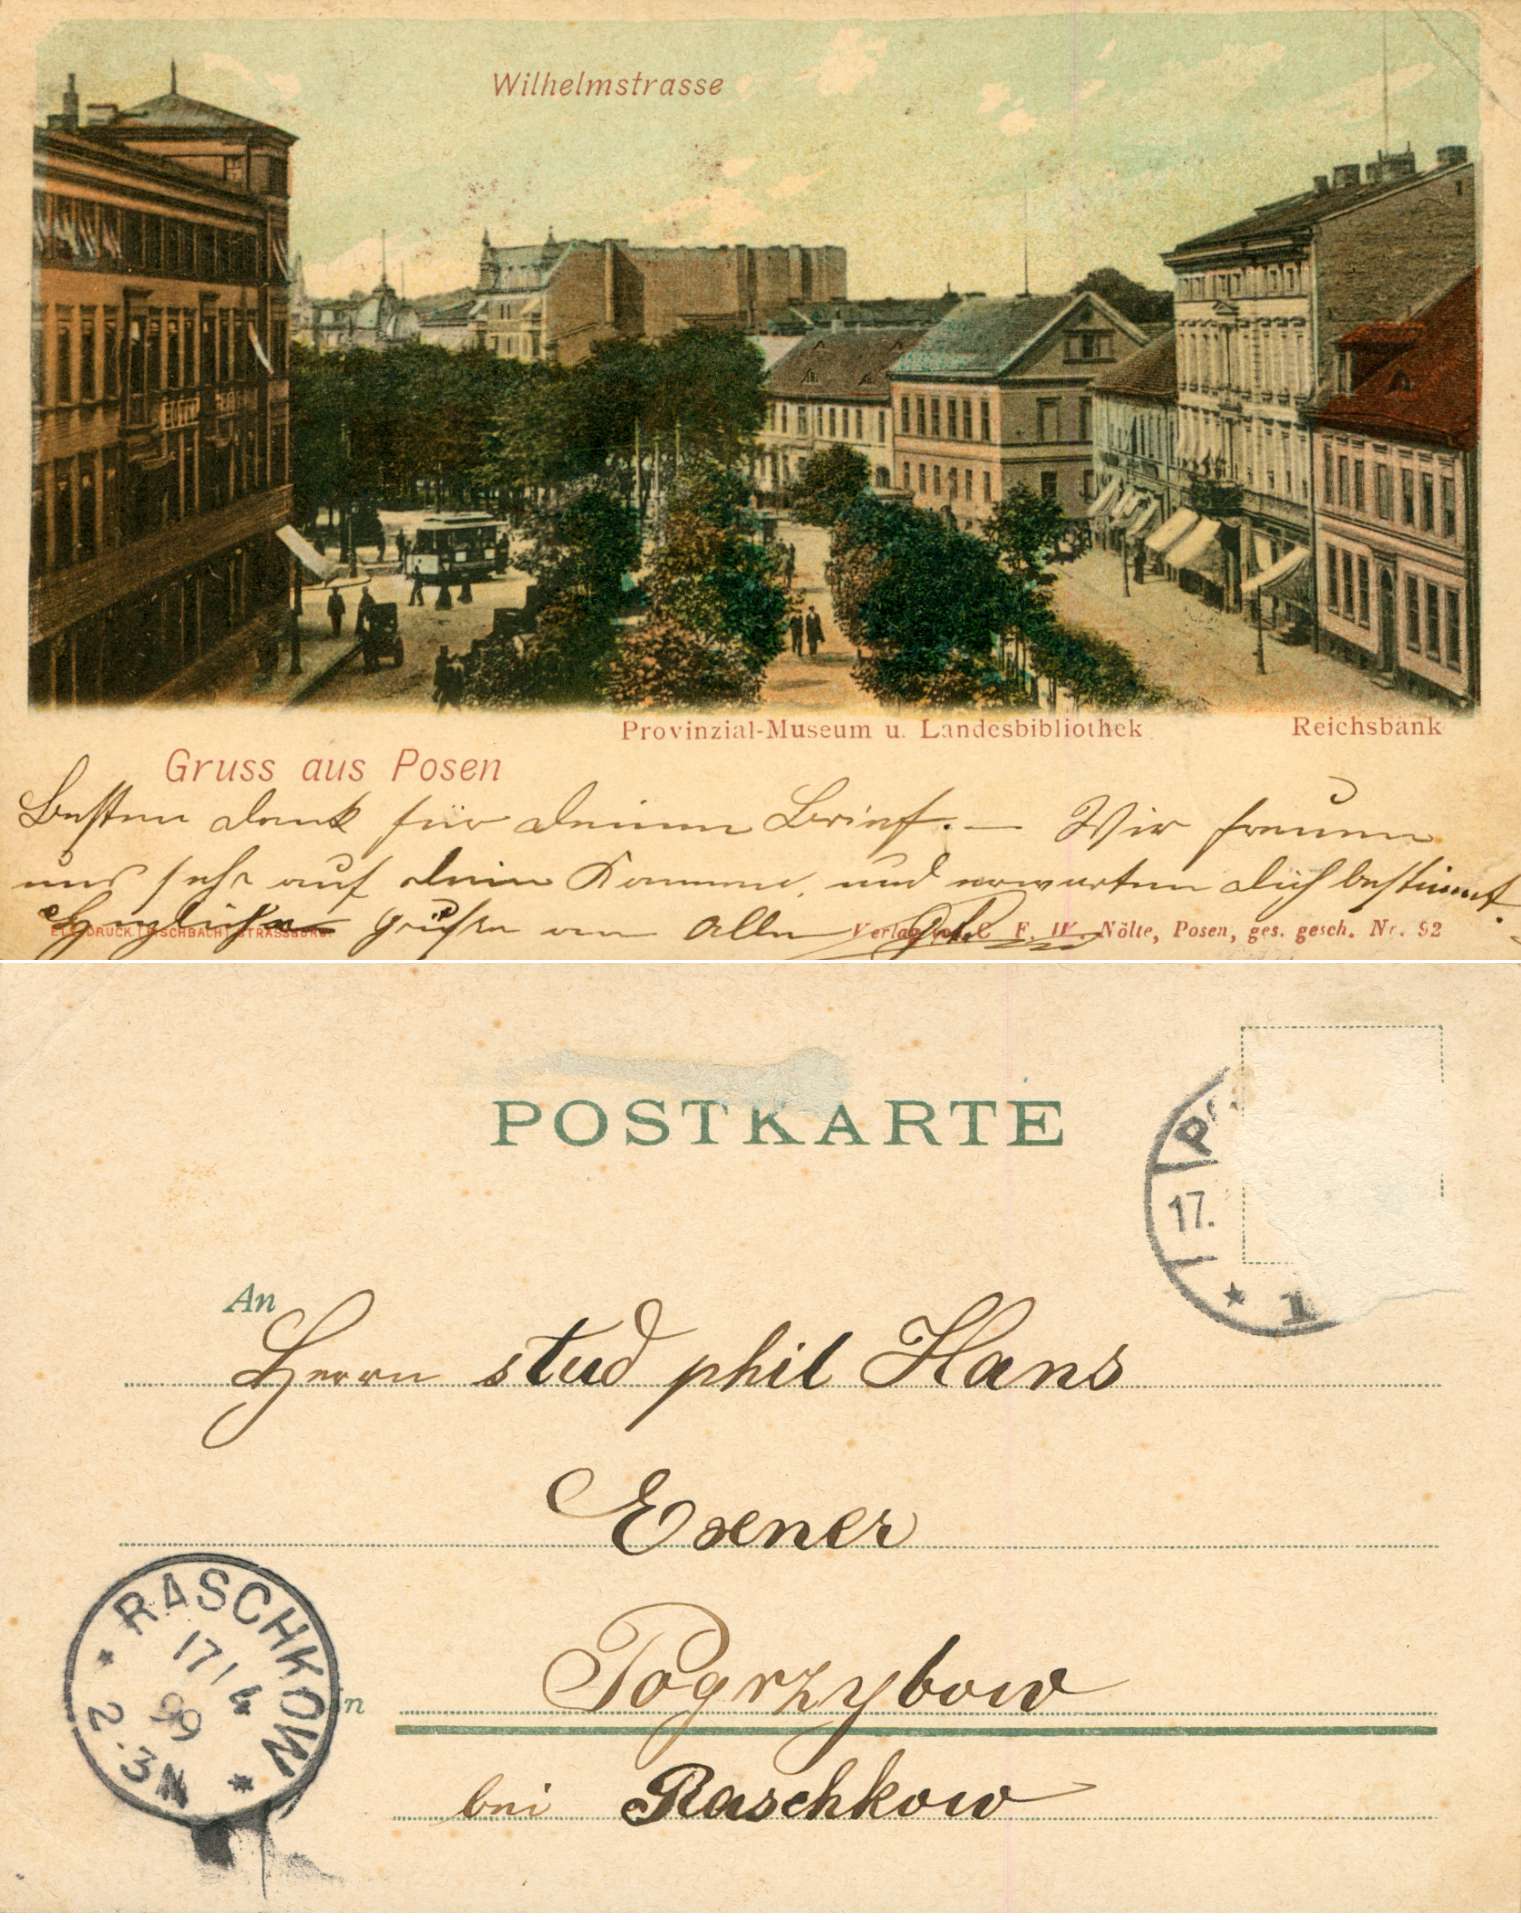 Wilhelmstrasse
HÔTEL
Provinzial-Museum u. Landesbibliothek
Reichsbank
Gruss aus Posen
Besten Dank für deinen Brief. — Wir freuen
uns sehr auf dein Kommen, und erwarten dich bestimmt.
Herzliche Grüße von Allen
DRUCK FISCHBACH STRASSBURG
Verlag von C. F. W. Nölte, Posen, ges. gesch. Nr. 92
POSTKARTE
17.
* 1
An
Herrn stud phil Hans
Exener
Pogrzybow
in
bei Raschkow
RASCHKOW
17/4
99
2-3N